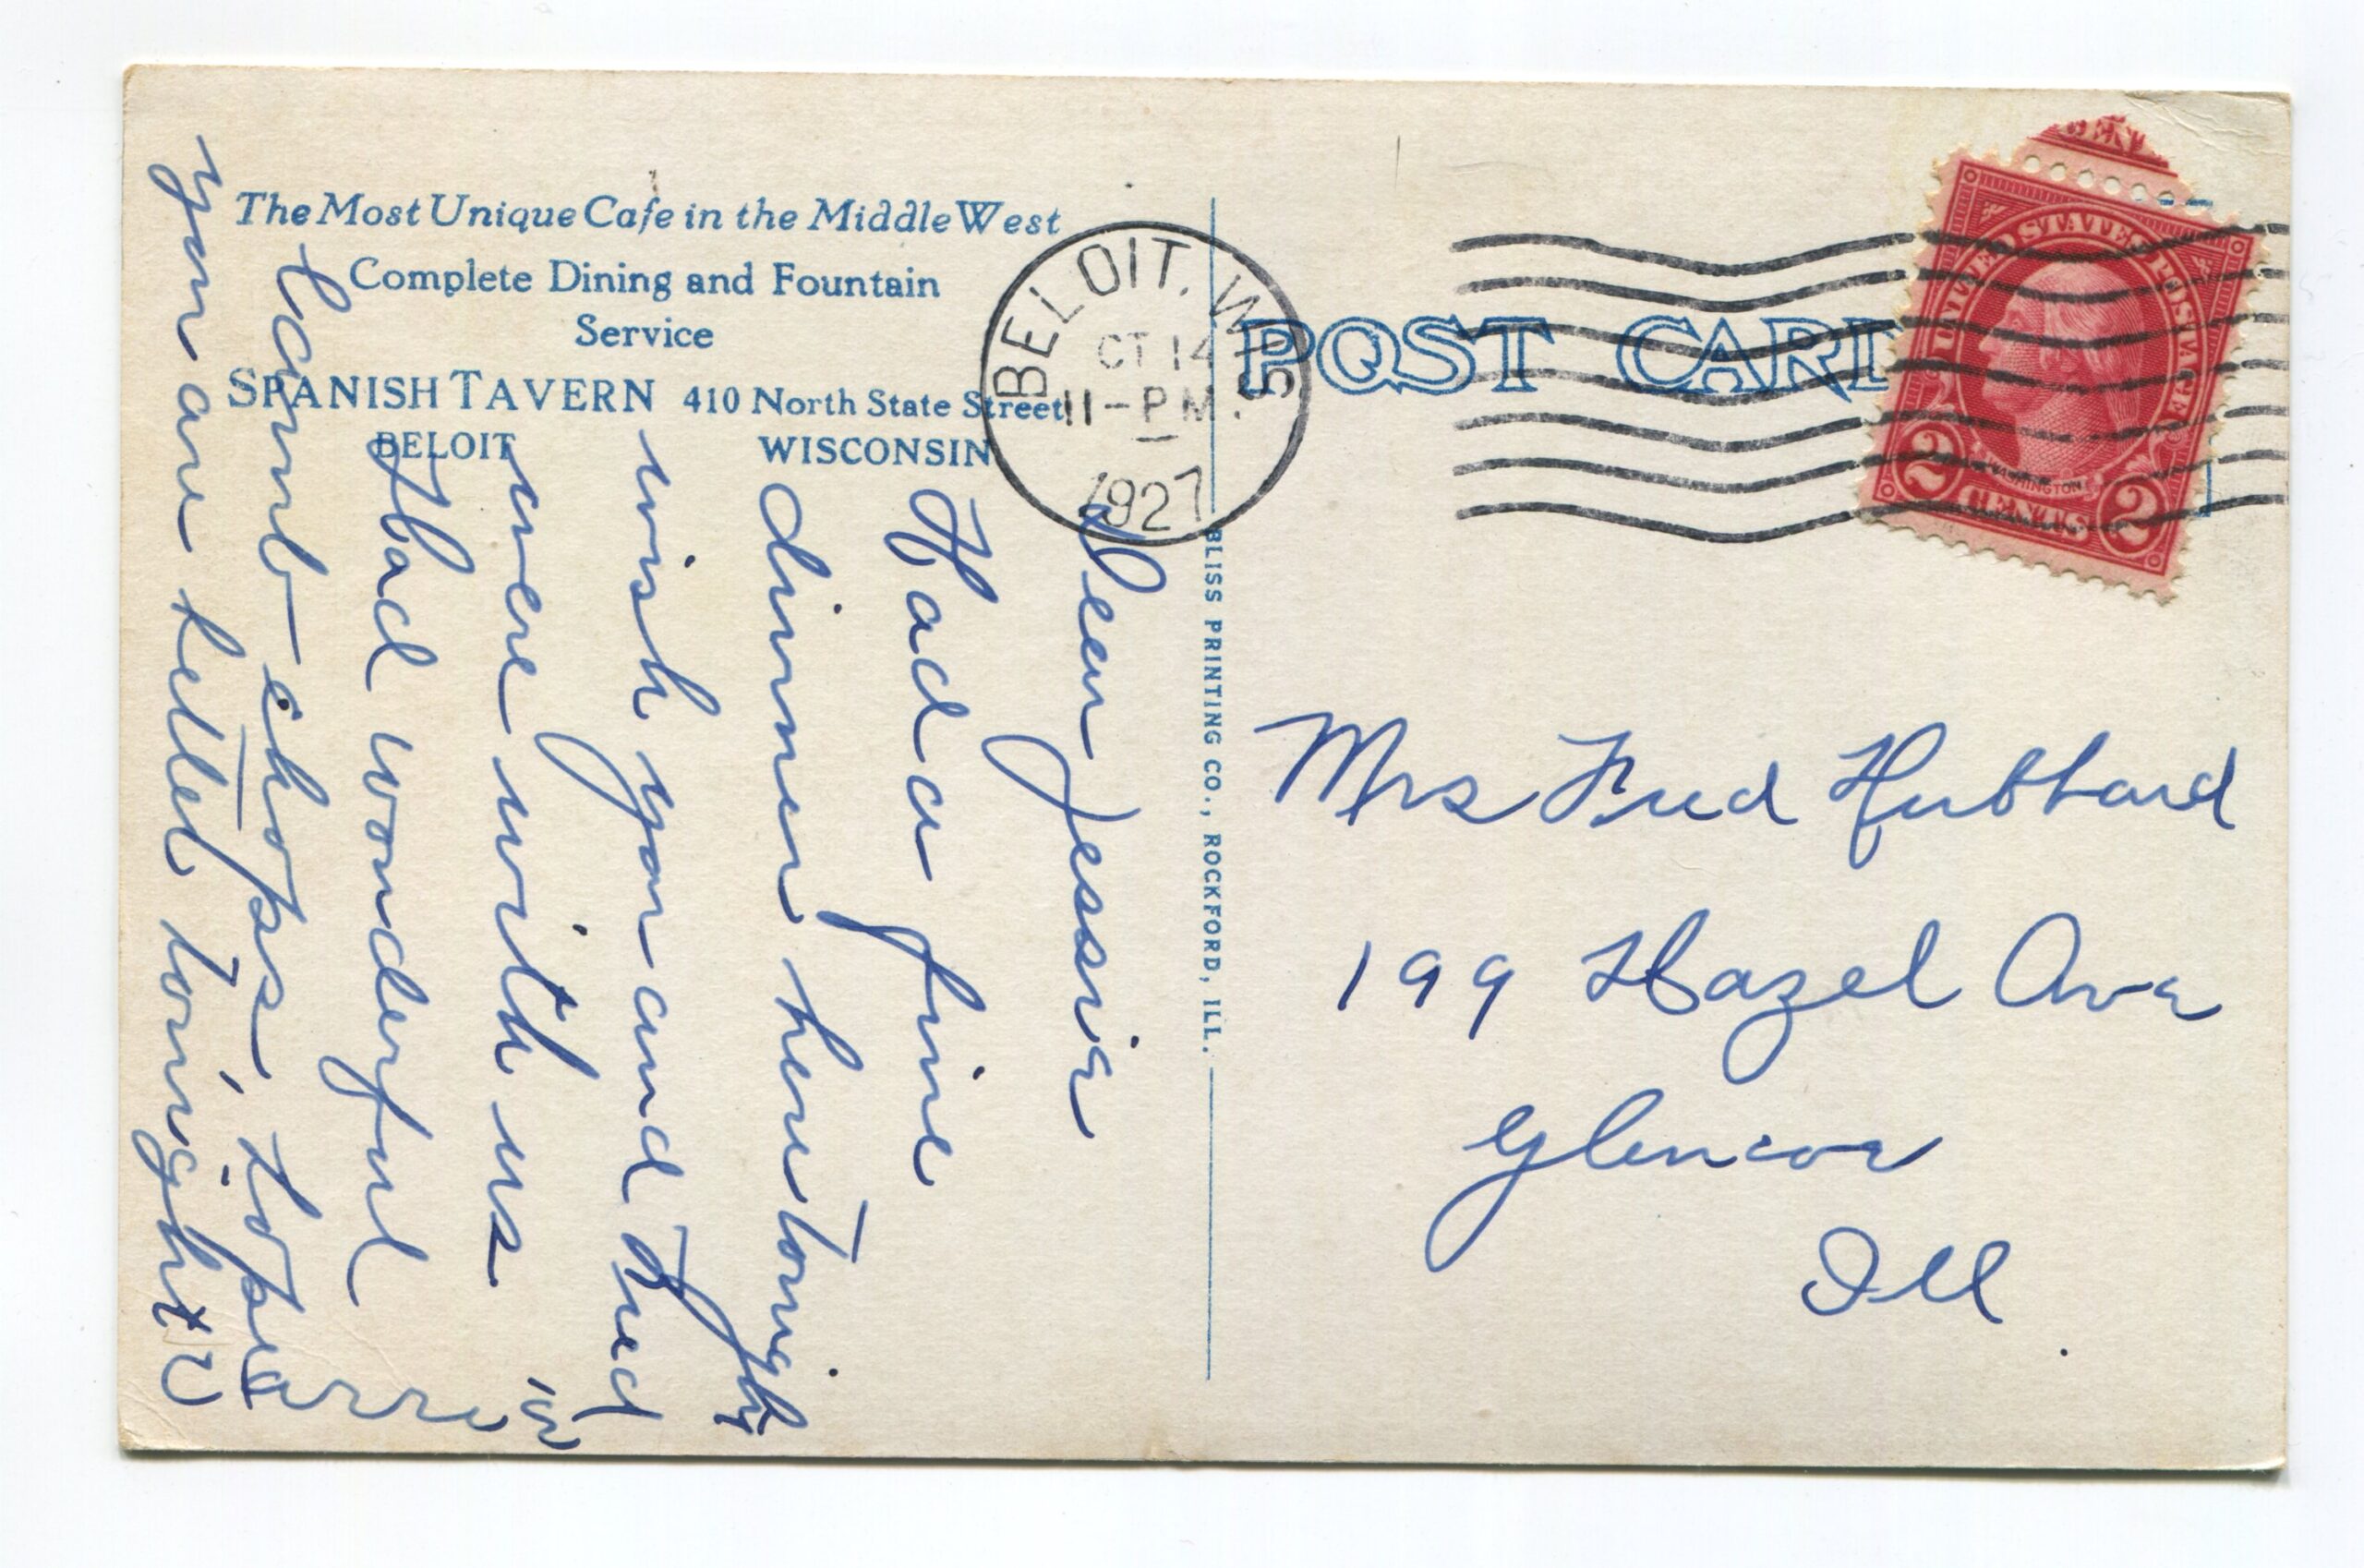 The Most Unique Cafe in the Middle West
Complete Dining and Fountain
Service
SPANISH TAVERN 410 North State Street
BELOIT WISCONSIN
BELOIT, WIS.
OCT 14
11-PM
1927
POST CARD
UNITED STATES POSTAGE
WASHINGTON
2 CENTS 2
BLISS PRINTING CO., ROCKFORD, ILL.
Dear Jessie
Had a fine
dinner here tonight
wish you and Fred
were with us
Had wonderful
lamb chops, hope
you are better tonight
Mrs Fred Hubbard
199 Hazel Ave
Glencoe
Ill.